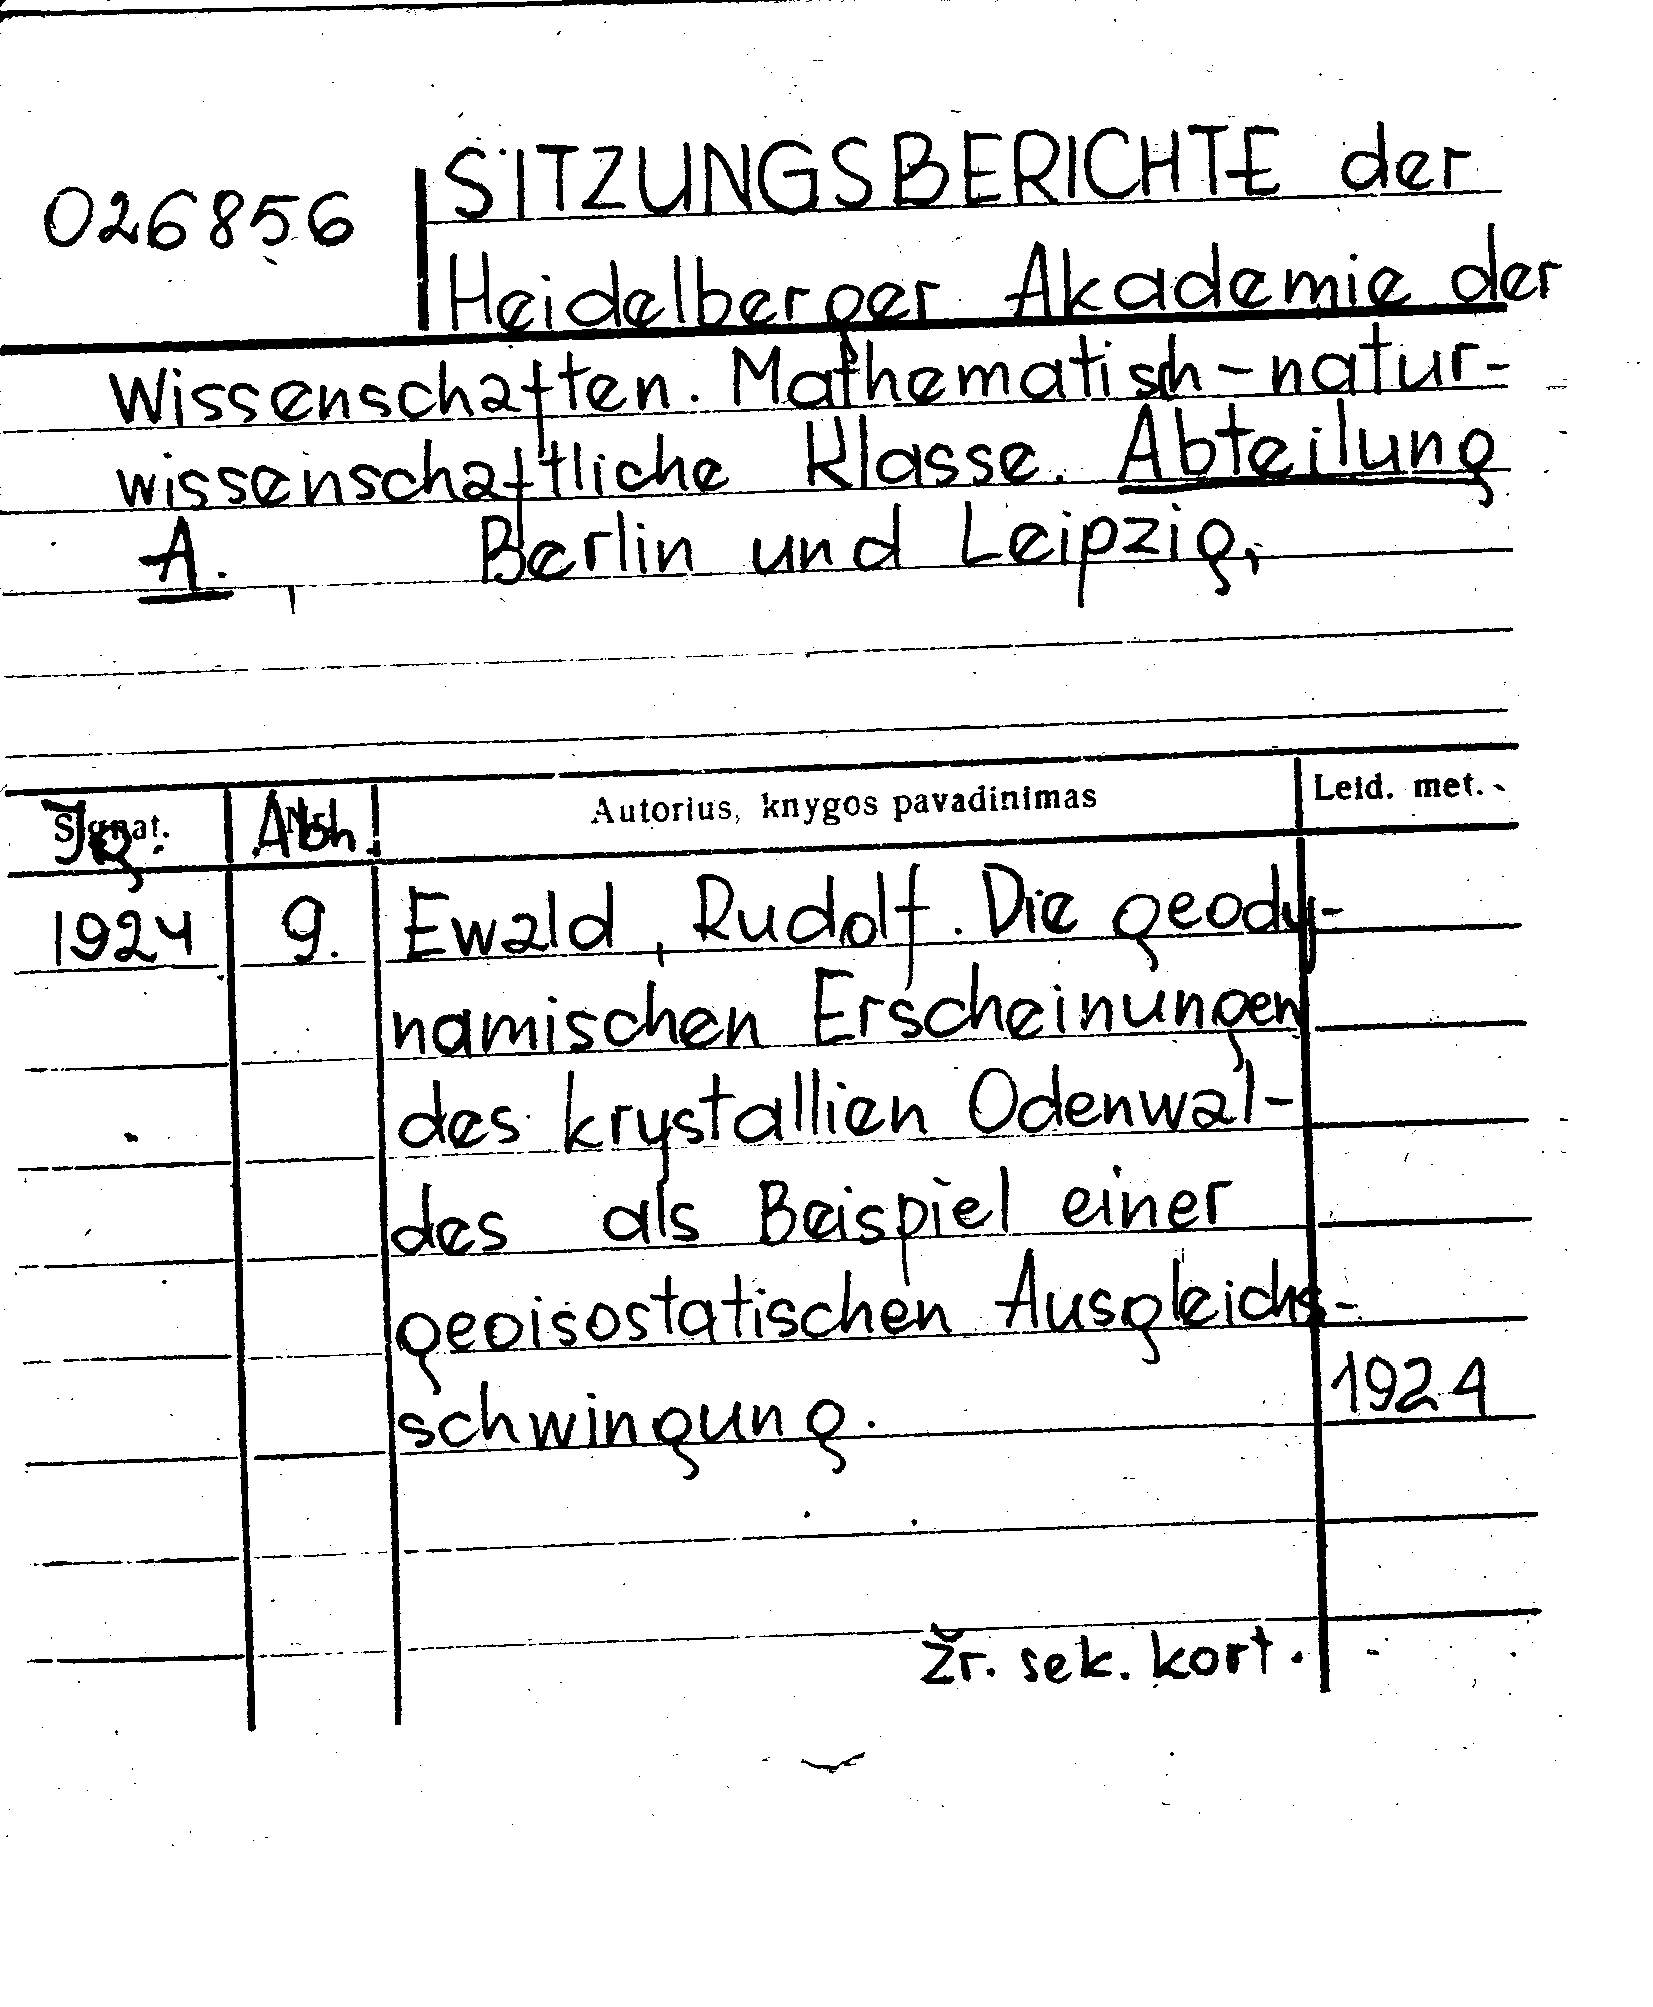 026856 SITZUNGSBERICHTE der
Heidelberger Akademie der
Wissenschaften. Mathematisch-natur-
wissenschaftliche Klasse. Abteilung
A. Berlin und Leipzig,
Signat. Jg. Nr. Abh. Autorius, knygos pavadinimas Leid. met.
1924 9. Ewald, Rudolf. Die geody-
namischen Erscheinungen
des krystallien Odenwal-
des als Beispiel einer
geoisostatischen Ausgleichs-
schwingung. 1924
žr. sek. kort.